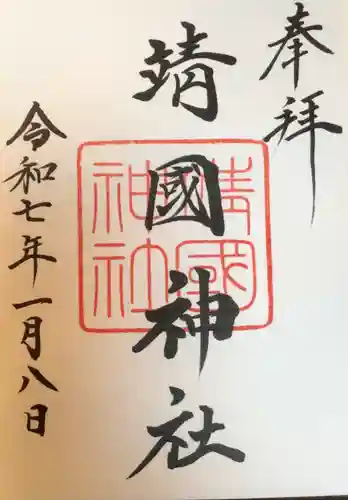 奉拝
靖國神社
靖國神社
令和七年一月八日